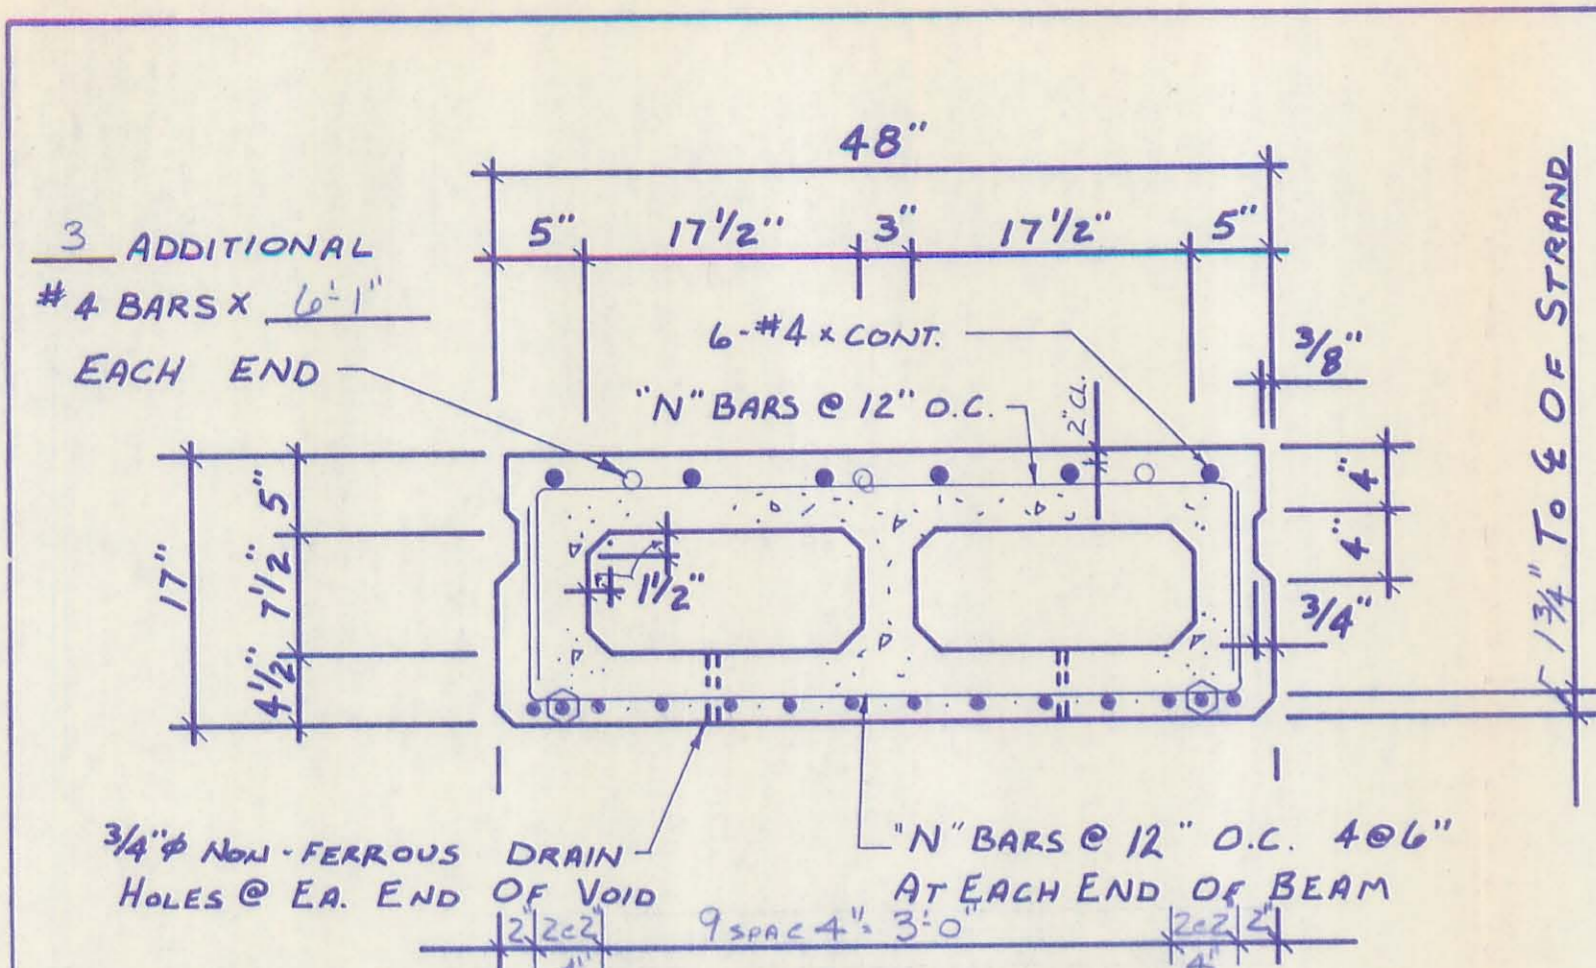 48"
5" 17 1/2" 3" 17 1/2" 5"
3 ADDITIONAL
#4 BARS X 6'-1"
EACH END
6-#4 x CONT.
"N" BARS @ 12" O.C.
2" CL.
3/8"
4"
4"
3/4"
1 3/4" TO ℄ OF STRAND
17"
5"
7 1/2"
4 1/2"
1 1/2"
3/4"φ NON-FERROUS DRAIN
HOLES @ EA. END OF VOID
"N" BARS @ 12" O.C. 4@6"
AT EACH END OF BEAM
2" 2@2" 9 SPA@4"= 3'-0" 2@2" 2"
4" 4"